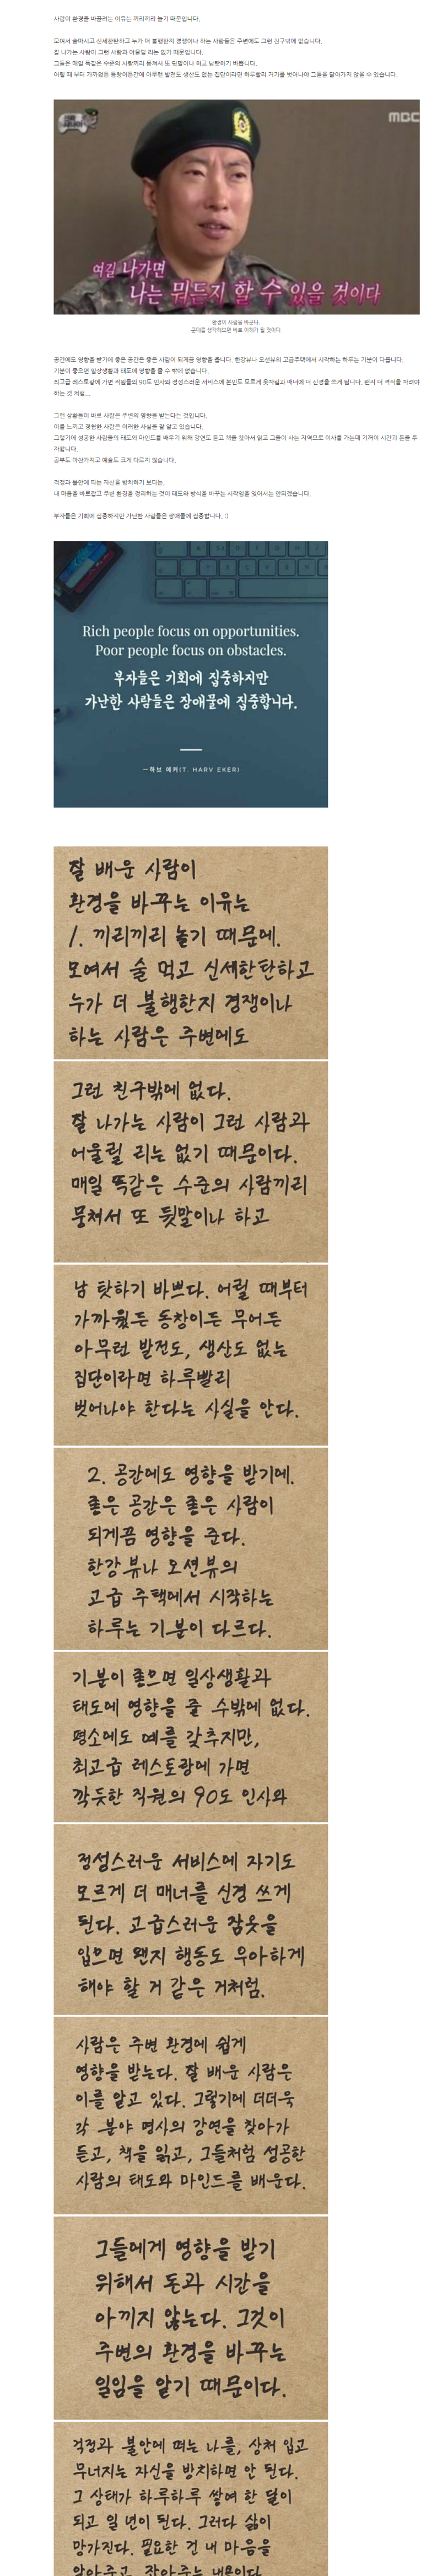 사람이 환경을 바꿀려는 이유는 끼리끼리 놀기 때문입니다.
모여서 술마시고 신세한탄하고 누가 더 불행한지 경쟁이나 하는 사람들은 주변에도 그런 친구밖에 없습니다.
잘 나가는 사람이 그런 사람과 어울릴 리는 없기 때문입니다.
그들은 매일 똑같은 수준의 사람끼리 뭉쳐서 또 뒷말이나 하고 남탓하기 바쁩니다.
어릴 때 부터 가까웠든 동창이든간에 아무런 발전도 생산도 없는 집단이라면 하루빨리 거기를 벗어나야 그들을 닮아가지 않을 수 있습니다.
MBC
여길 나가면
나는 뭐든지 할 수 있을 것이다
환경이 사람을 바꾼다.
군대를 생각해보면 바로 이해가 될 것이다.
공간에도 영향을 받기에 좋은 공간은 좋은 사람이 되게끔 영향을 줍니다. 한강뷰나 오션뷰의 고급주택에서 시작하는 하루는 기분이 다릅니다.
기분이 좋으면 일상생활과 태도에 영향을 줄 수 밖에 없습니다.
최고급 레스토랑에 가면 직원들의 90도 인사와 정성스러운 서비스에 본인도 모르게 옷차림과 매너에 더 신경을 쓰게 됩니다. 왠지 더 격식을 차려야
하는 것 처럼...
그런 상황들이 바로 사람은 주변의 영향을 받는다는 것입니다.
이를 느끼고 경험한 사람은 이러한 사실을 잘 알고 있습니다.
그렇기에 성공한 사람들의 태도와 마인드를 배우기 위해 강연도 듣고 책을 찾아서 읽고 그들이 사는 지역으로 이사를 가는데 기꺼이 시간과 돈을 투
자합니다.
공부도 마찬가지고 예술도 크게 다르지 않습니다.
걱정과 불안에 떠는 자신을 방치하기 보다는,
내 마음을 바로잡고 주변 환경을 정리하는 것이 태도와 방식을 바꾸는 시작임을 잊어서는 안되겠습니다.
부자들은 기회에 집중하지만 가난한 사람들은 장애물에 집중합니다. :)
Rich people focus on opportunities.
Poor people focus on obstacles.
부자들은 기회에 집중하지만
가난한 사람들은 장애물에 집중합니다.
—하브 에커(T. HARV EKER)
잘 배운 사람이
환경을 바꾸는 이유는
1. 끼리끼리 놀기 때문에.
모여서 술 먹고 신세한탄하고
누가 더 불행한지 경쟁이나
하는 사람은 주변에도
그런 친구밖에 없다.
잘 나가는 사람이 그런 사람과
어울릴 리는 없기 때문이다.
매일 똑같은 수준의 사람끼리
뭉쳐서 또 뒷말이나 하고
남 탓하기 바쁘다. 어릴 때부터
가까웠든 동창이든 무어든
아무런 발전도, 생산도 없는
집단이라면 하루빨리
벗어나야 한다는 사실을 안다.
2. 공간에도 영향을 받기에.
좋은 공간은 좋은 사람이
되게끔 영향을 준다.
한강 뷰나 오션뷰의
고급 주택에서 시작하는
하루는 기분이 다르다.
기분이 좋으면 일상생활과
태도에 영향을 줄 수밖에 없다.
평소에도 예를 갖추지만,
최고급 레스토랑에 가면
깍듯한 직원의 90도 인사와
정성스러운 서비스에 자기도
모르게 더 매너를 신경 쓰게
된다. 고급스러운 잠옷을
입으면 왠지 행동도 우아하게
해야 할 거 같은 거처럼.
사람은 주변 환경에 쉽게
영향을 받는다. 잘 배운 사람은
이를 알고 있다. 그렇기에 더더욱
각 분야 명사의 강연을 찾아가
듣고, 책을 읽고, 그들처럼 성공한
사람의 태도와 마인드를 배운다.
그들에게 영향을 받기
위해서 돈과 시간을
아끼지 않는다. 그것이
주변의 환경을 바꾸는
일임을 알기 때문이다.
걱정과 불안에 떠는 나를, 상처 입고
무너지는 자신을 방치하면 안 된다.
그 상태가 하루하루 쌓여 한 달이
되고 일 년이 된다. 그러다 삶이
망가진다. 필요한 건 내 마음을